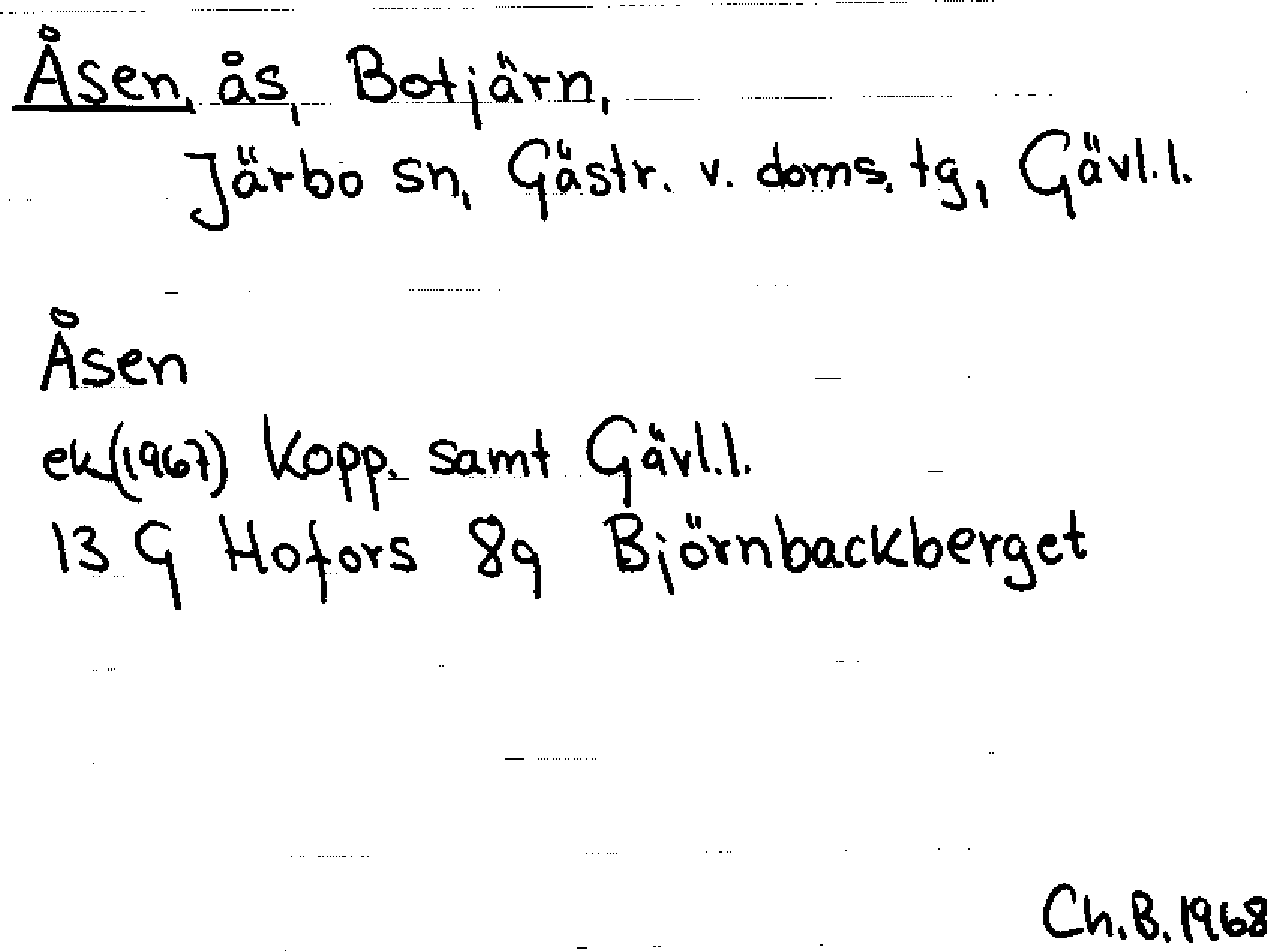 Åsen, ås, Botjärn,
Järbo sn, Gästr. v. doms. tg, Gävl.l.
Åsen
ek(1967) Kopp. samt Gävl.l.
13 G Hofors 8g Björnbackberget
Ch.B.1968